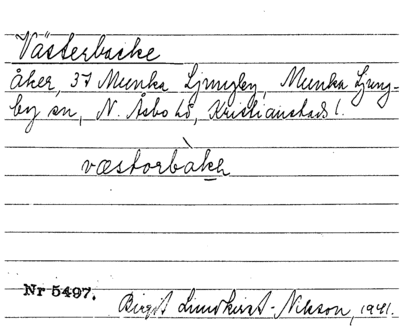 Västerbacke
åker, 37 Munka Ljungby, Munka Ljung-
by sn, N. Åsbo hd, Kristianstads l.
væstorbàkh
Nr 5497.
Birgit Lundkvist-Nilsson, 1941.